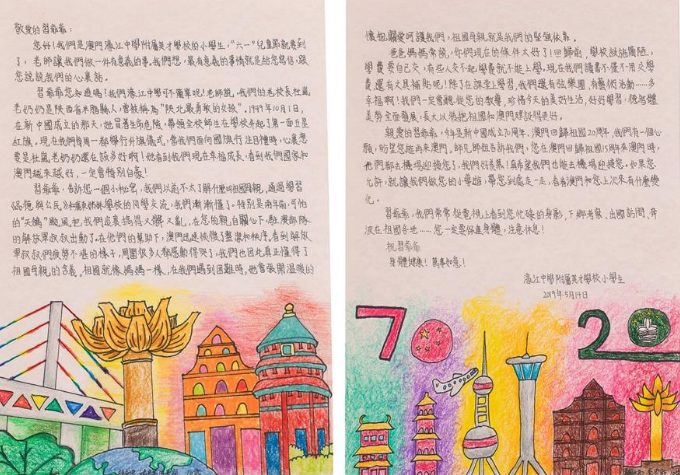 敬愛的習爺爺:
您好!我們是澳門濠江中學附屬英才學校的小學生,"六一"兒童節就要到
了,老師讓我們做一件有意義的事,我們想,最有意義的事情就是給您寫信,跟
您說說我們的心裏話。
習爺爺您知道嗎?我們濠江中學可不簡單呢!老師說,我們的老校長杜嵐
老奶奶是陝西省米脂縣人,曾被稱為"陝北最勇敢的女孩"。1949年10月1日,
在新中國成立的那天,她冒着生命危險,帶領全校師生在學校升起了第一面五星
紅旗。現在我們每周一都舉行升旗儀式,當我們面向國旗行注目禮時,心裏想
要是杜嵐老奶奶還在該多好啊!她看到我們現在幸福成長,看到我們國家和
澳門越來越好,一定會特別自豪!
習爺爺,告訴您一個小秘密,我們以前不太了解什麼叫祖國母親,通過學習
學校的同學交流,我們漸漸懂了。特別是兩年前,可怕
的"天鴿"颱風把我們家裏搞得又髒又亂,在您的親自關心下,駐澳部隊
的解放軍叔叔出動了。在他們的幫助下,澳門迅速恢復了整潔和秩序。看到解放
軍叔叔們疲勞不堪的樣子,周圍很多人都感動得哭了,我們也因此真正懂得了
祖國母親的含義,祖國就像媽媽一樣,在我們遇到困難時,她會張開溫暖的
懷抱關愛呵護我們,祖國母親就是我們的堅強依靠。
爸爸媽媽常說,你們現在的條件太好了!回歸前,學校設施簡陋,
學費要自己交,有些人交不起學費就不能上學。現在我們讀書不僅不用交學
費,還有文具補貼呢!除了在課堂上學習,我們還有遊樂園、有藝術活動……多
幸福啊!我們一定會聽從您的教導,珍惜今天的美好生活,好好學習,德智體
美勞全面發展,長大以後把祖國和澳門建設得更好。
親愛的習爺爺,今年是新中國成立70周年、澳門回歸祖國20周年,我們有一個心
願,盼望您能再來澳門。師兄師姐告訴我們,您在澳門回歸祖國15周年來澳門時,
他們都去機場迎接您了,我們好羨慕!真希望我們也能去機場迎接您。如果您
允許,就讓我們做您的小導遊,帶您到處走一走,看看澳門和您上次來有什麼變
化。
習爺爺,我們常常從電視上看到您忙碌的身影,下鄉考察、出國訪問、奔
波在祖國各地……您一定要保重身體,注意休息!
祝習爺爺
身體健康!萬事如意!
濠江中學附屬英才學校小學生
2019年5月19日
70
20